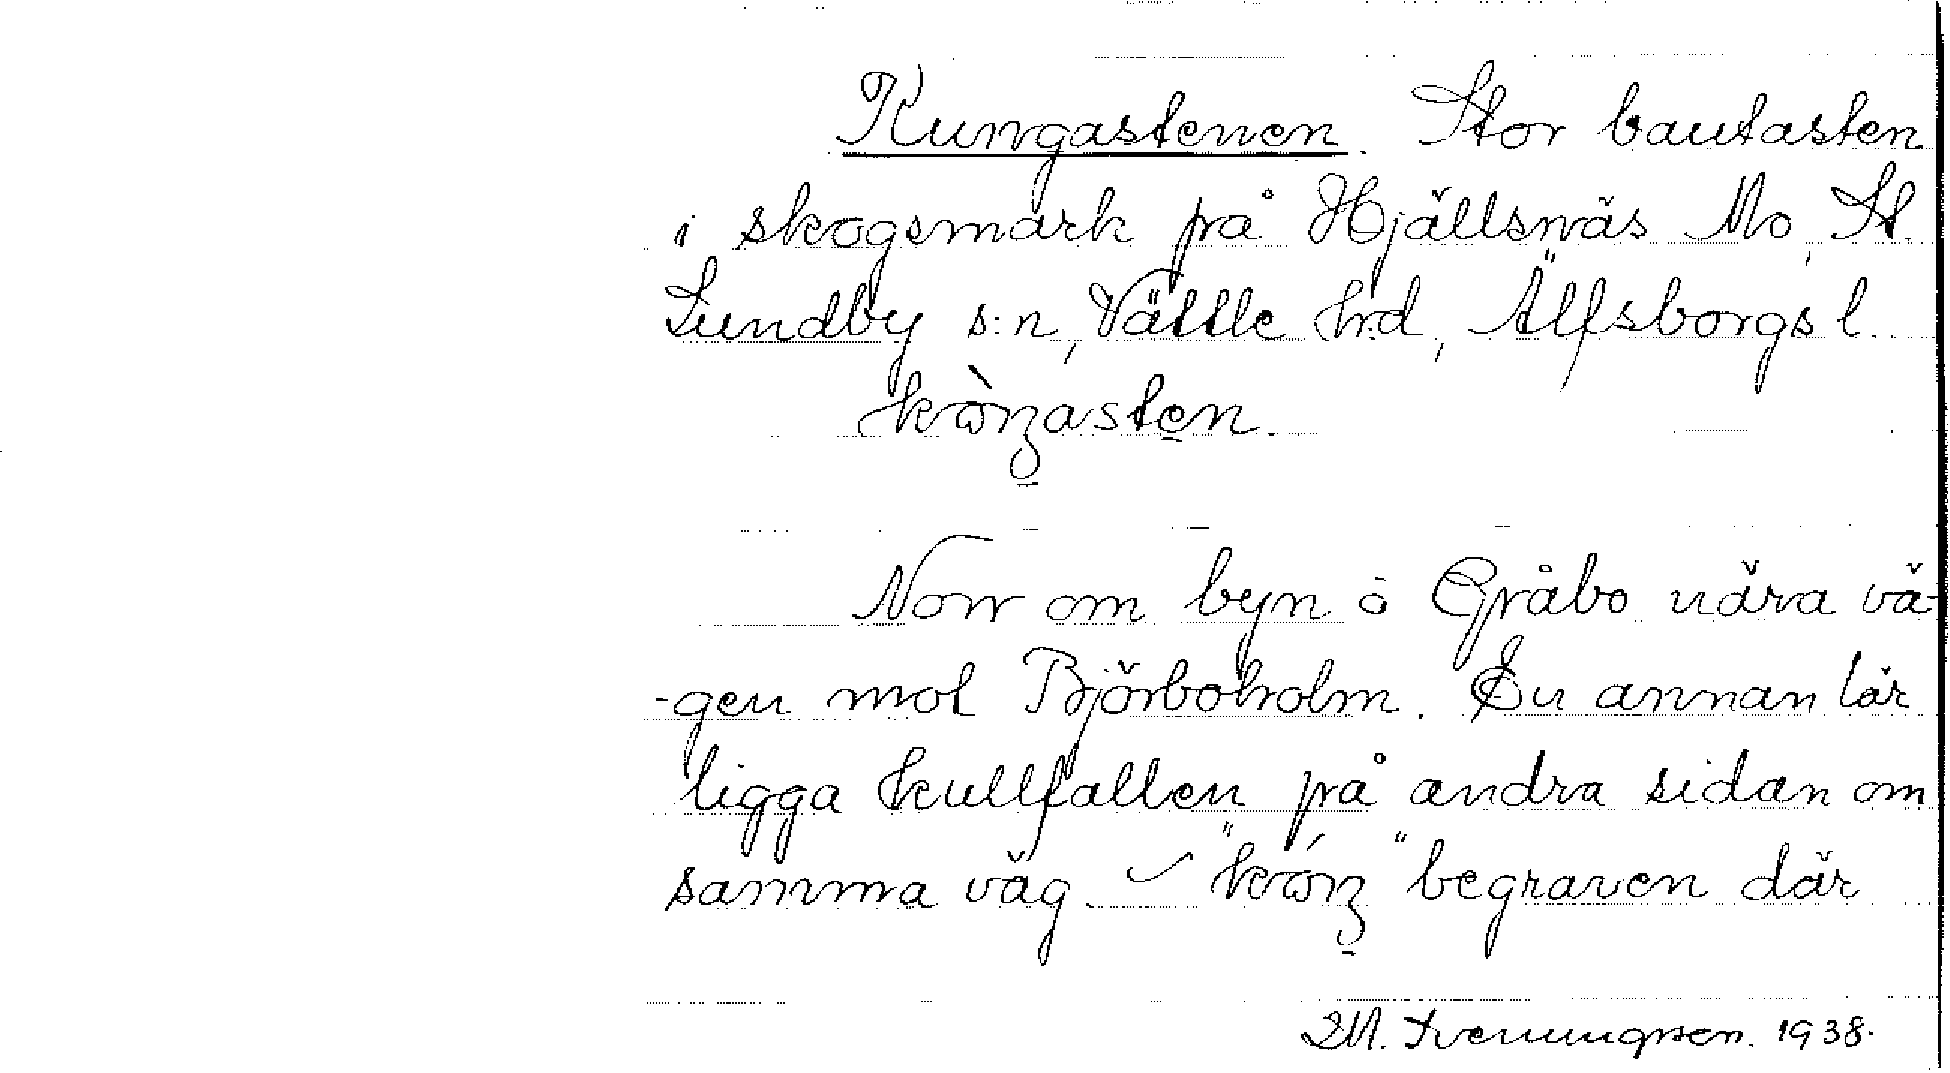 Kungastenen. Stor bautasten
i skogsmark på Hjällsnäs Mo, St.
Lundby s:n, Vättle hrd, Älfsborgs l.
Norr om byn o Gråbo nära vä-
-gen mot Björboholm. En annan lär
ligga kullfallen på andra sidan om
samma väg. begraven där
1938.